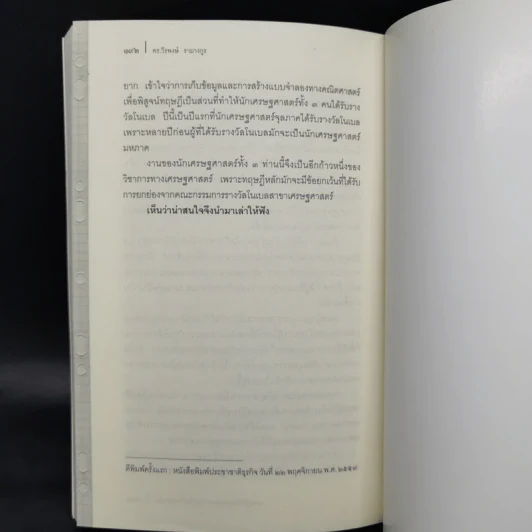 ๑๙๒ | ดร.วีรพงษ์ รามางกูร
ยาก เข้าใจว่าการเก็บข้อมูลและการสร้างแบบจำลองทางคณิตศาสตร์
เพื่อพิสูจน์ทฤษฎีเป็นส่วนที่ทำให้นักเศรษฐศาสตร์ทั้ง ๓ คนได้รับราง
วัลโนเบล ปีนี้เป็นปีแรกที่นักเศรษฐศาสตร์จุลภาคได้รับรางวัลโนเบล
เพราะหลายปีก่อนผู้ที่ได้รับรางวัลโนเบลมักจะเป็นนักเศรษฐศาสตร์
มหภาค
งานของนักเศรษฐศาสตร์ทั้ง ๓ ท่านนี้จึงเป็นอีกก้าวหนึ่งของ
วิชาการทางเศรษฐศาสตร์ เพราะทฤษฎีหลักมักจะมีข้อยกเว้นที่ได้รับ
การยกย่องจากคณะกรรมการรางวัลโนเบลสาขาเศรษฐศาสตร์
เห็นว่าน่าสนใจจึงนำมาเล่าให้ฟัง
ตีพิมพ์ครั้งแรก : หนังสือพิมพ์ประชาชาติธุรกิจ วันที่ ๒๒ พฤศจิกายน พ.ศ. ๒๕๕๓